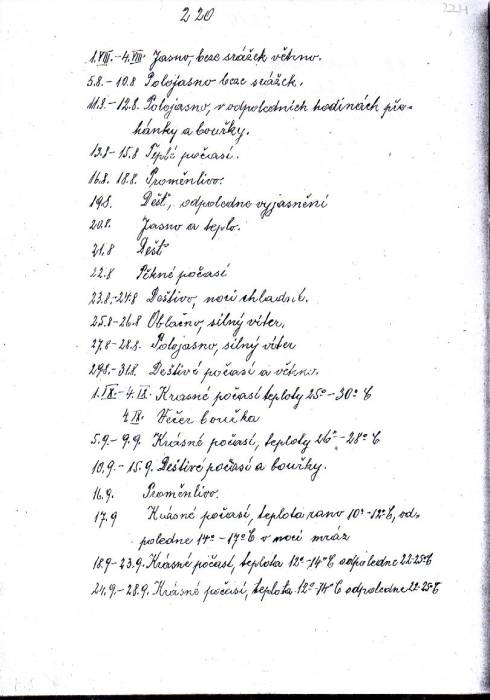 220
1.VIII.-4.VIII. Jasno, beze srážek větrno.
5.8.-10.8 Polojasno beze srážek.
11.8.-12.8. Polojasno, v odpoledních hodinách pře-
hánky a bouřky.
13.8-15.8 Teplé počasí.
16.8. 18.8. Proměnlivo.
19.8. Déšť, odpoledne vyjasnění
20.8. Jasno a teplo.
21.8 Déšť
22.8 Pěkné počasí
23.8.-24.8 Deštivo, noci chladné.
25.8-26.8 Oblačno, silný vítr.
27.8-28.8. Polojasno, silný víter
29.8.-31.8. Deštivé počasí a větrno.
1.IX.-4.IX. Krásné počasí teploty 25°-30°C
4.IX. Večer bouřka
5.9.-9.9. Krásné počasí, teploty 26°-28°C
10.9.-15.9. Deštivé počasí a bouřky.
16.9. Proměnlivo.
17.9 Krásné počasí, teplota ráno 10°-12°C, od-
poledne 14°-17°C v noci mráz
18.9-23.9. Krásné počasí, teplota 12°-14°C odpoledne 22-25°C
24.9.-28.9. Krásné počasí, teplota 12°-14°C odpoledne 22-25°C